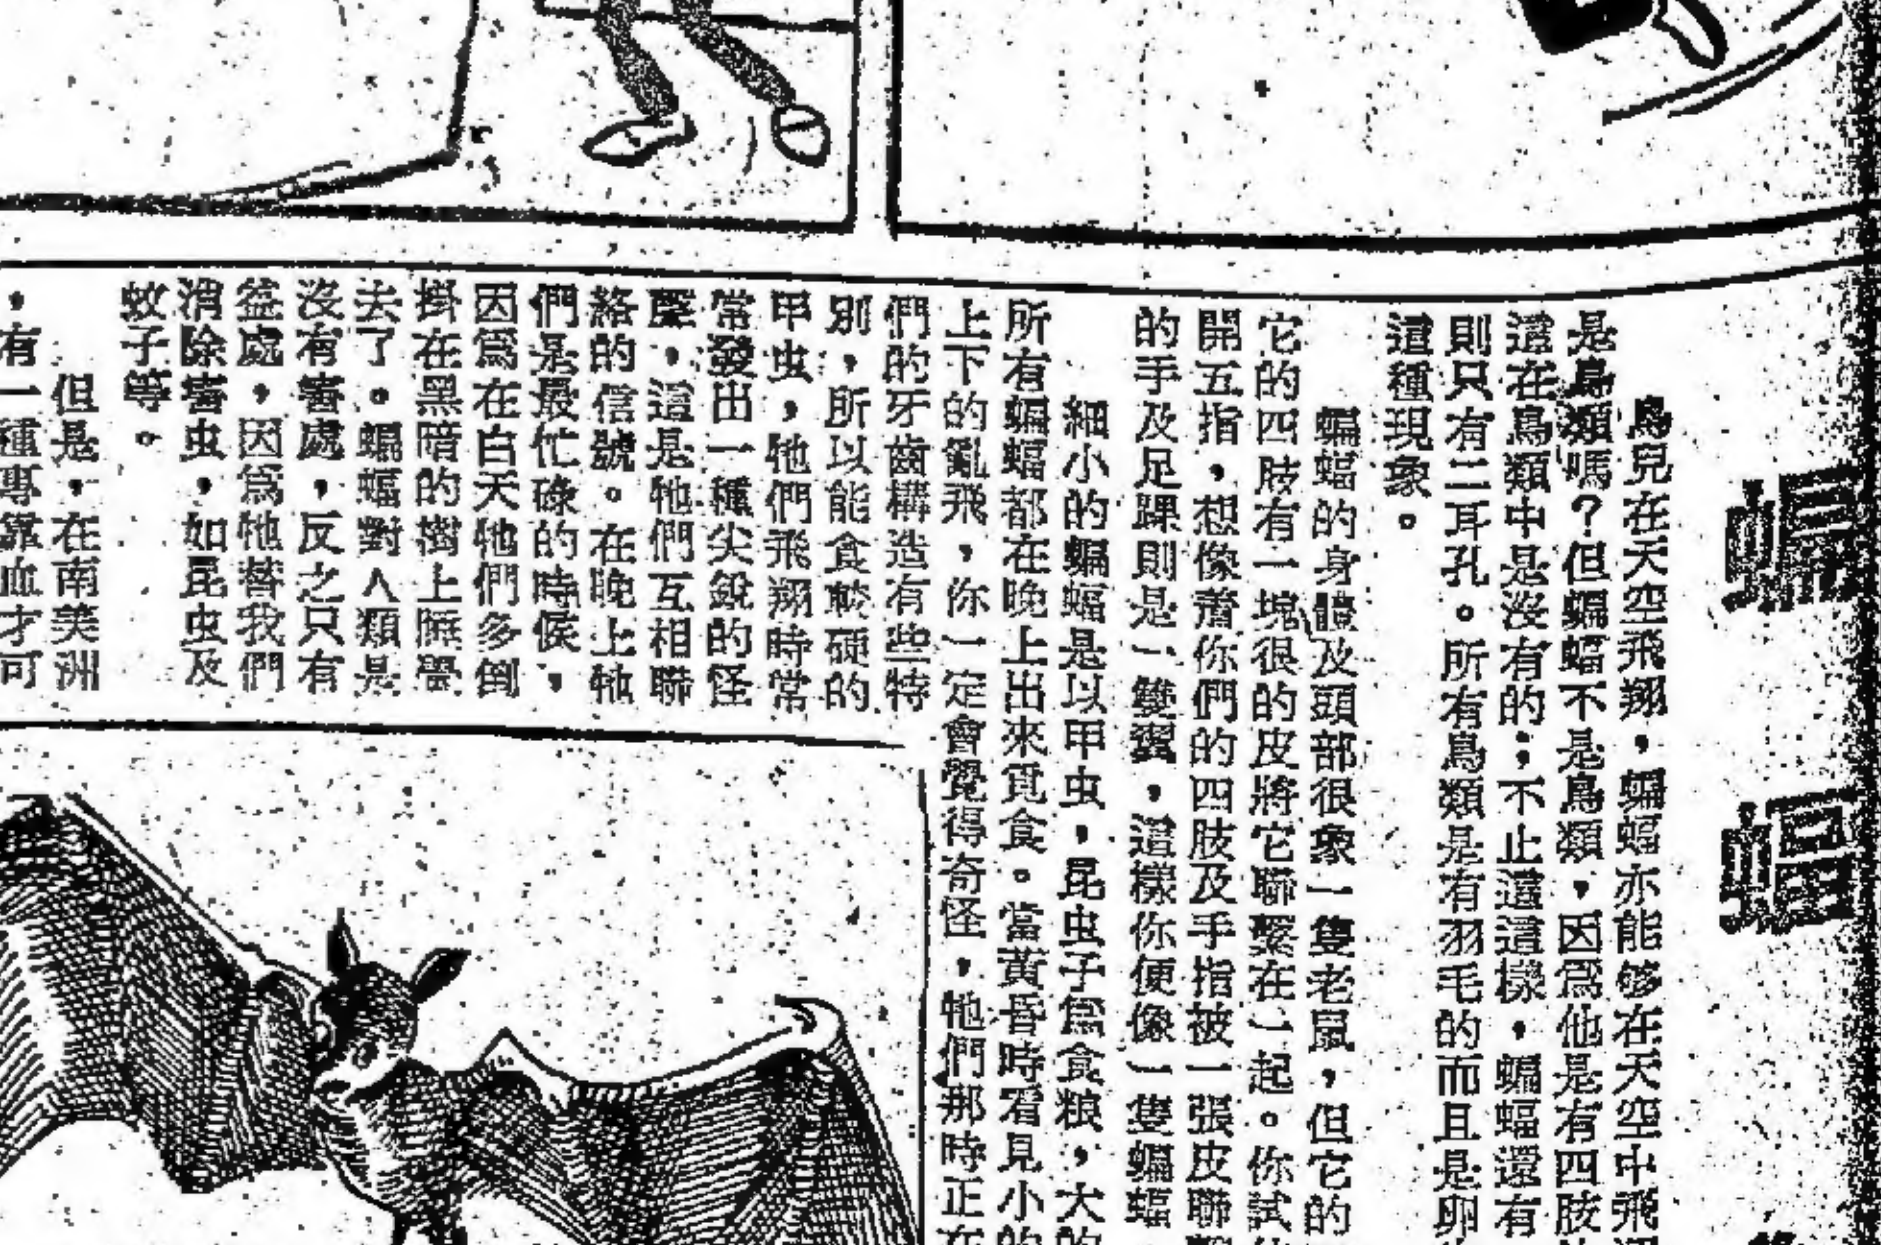 蝙蝠
鳥兒在天空飛翔，蝙蝠亦能够在天空中飛
是鳥類嗎？但蝙蝠不是鳥類，因爲他是有四肢
這在鳥類中是沒有的；不止這樣，蝙蝠還有
則只有二耳孔。所有鳥類是有羽毛的而且是卵
這種現象。
蝙蝠的身體及頭部很象一隻老鼠，但它的
它的四肢有一塊很的皮將它聯繫在一起。你試
開五指，想像着你們的四肢及手指被一張皮聯
的手及足踝則是一雙翼，這樣你便像一隻蝙蝠
細小的蝙蝠是以甲虫，昆虫子爲食粮，大的
所有蝙蝠都在晚上出來覓食。當黃昏時看見小的
上下的亂飛，你一定會覺得奇怪，牠們那時正在
們的牙齒構造有些特
別，所以能食較硬的
甲虫，牠們飛翔時常
常發出一種尖銳的怪
聲，這是牠們互相聯
絡的信號。在晚上牠
們是最忙碌的時候，
因爲在白天牠們多倒
掛在黑暗的樹上睡覺
去了。蝙蝠對人類是
沒有害處，反之只有
益處，因爲牠替我們
消除害虫，如昆虫及
蚊子等。
但是，在南美洲
，有一種專靠血才可